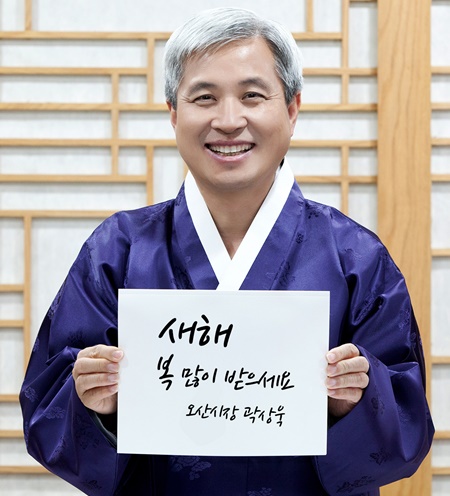 새해
복 많이 받으세요
오산시장 곽상욱